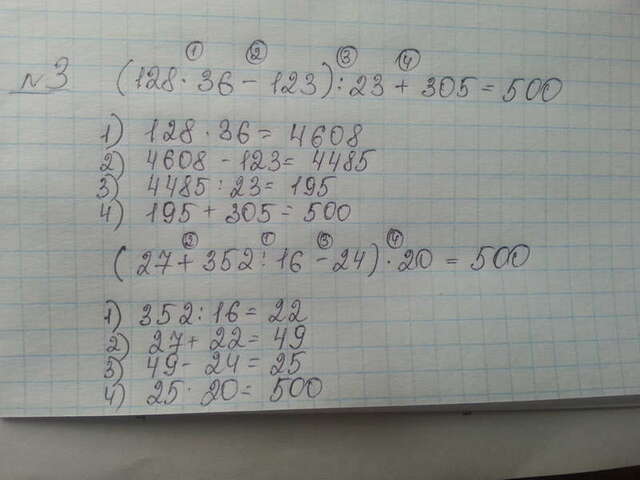 №3
① ② ③ ④
(128 · 36 - 123) : 23 + 305 = 500
1) 128 · 36 = 4608
2) 4608 - 123 = 4485
3) 4485 : 23 = 195
4) 195 + 305 = 500
② ① ③ ④
(27 + 352 : 16 - 24) · 20 = 500
1) 352 : 16 = 22
2) 27 + 22 = 49
3) 49 - 24 = 25
4) 25 · 20 = 500